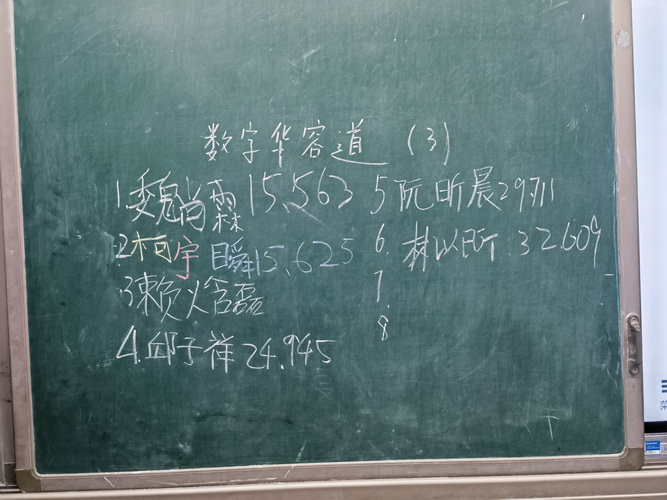 数字华容道 (3)
1.魏尚霖 15.563
2.柯宇瞬 15.625
3赖以含磊
4.邱子祥 24.945
5 阮昕晨 29711
6. 林以昕 32.609
7.
8